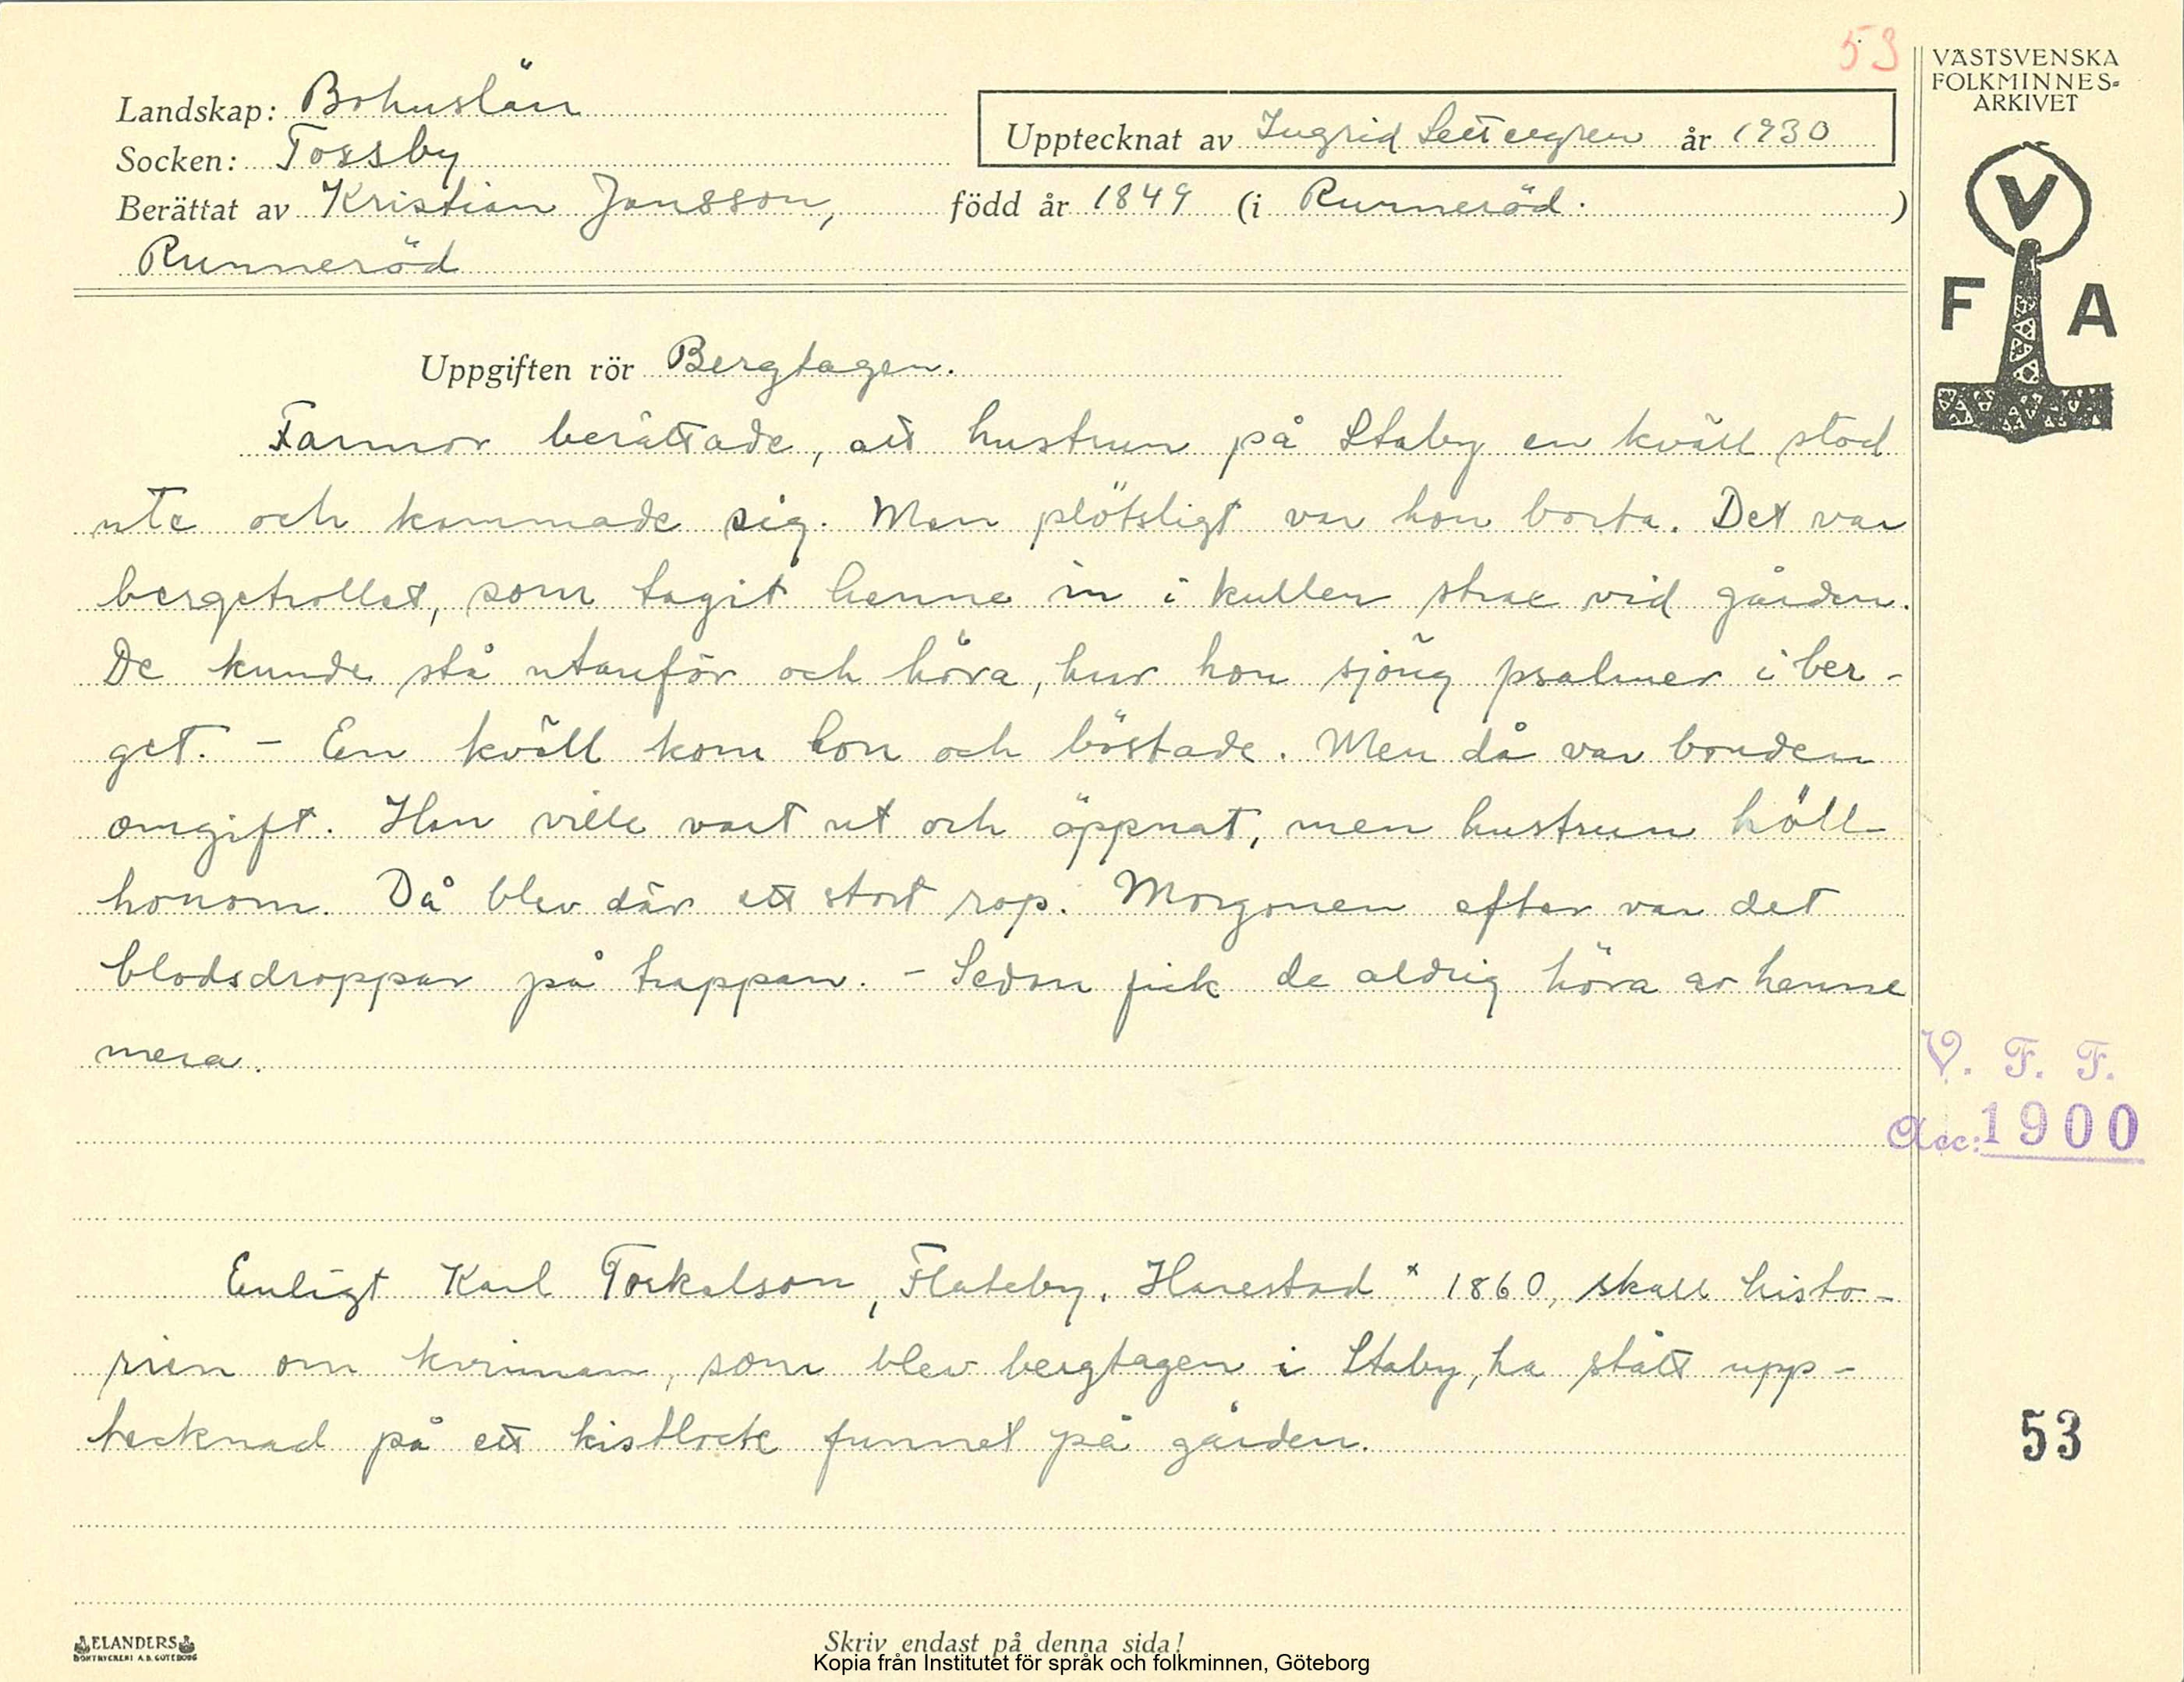 53
VÄSTSVENSKA
FOLKMINNES-
ARKIVET
Landskap: Bohuslän
Upptecknat av Ingrid Settergren år 1930
Socken: Torsby
Berättat av Kristian Jansson, född år 1849 (i Runneröd. )
Runneröd
V
F A
Uppgiften rör Bergtagen.
Farmor berättade, att hustrun på Staby en kväll stod
ute och kammade sig. Men plötsligt var hon borta. Det var
bergetrollet, som tagit henne in i kullen strax vid gården.
De kunde stå utanför och höra, hur hon sjöng psalmer i ber-
get. - En kväll kom hon och böstade. Men då var bonden
omgift. Han ville vart ut och öppnat, men hustrun höll
honom. Då blev där ett stort rop. Morgonen efter var det
blodsdroppar på trappan. - Sedan fick de aldrig höra av henne
mera.
V. F. F.
Acc: 1900
Enligt Karl Torkelson, Flateby, Harestad * 1860, skall histo-
rien om kvinnan, som blev bergtagen i Staby, ha stått upp-
tecknad på ett kistlock funnet på gården.
53
ELANDERS
BOKTRYCKERI A.B. GÖTEBORG
Skriv endast på denna sida!
Kopia från Institutet för språk och folkminnen, Göteborg